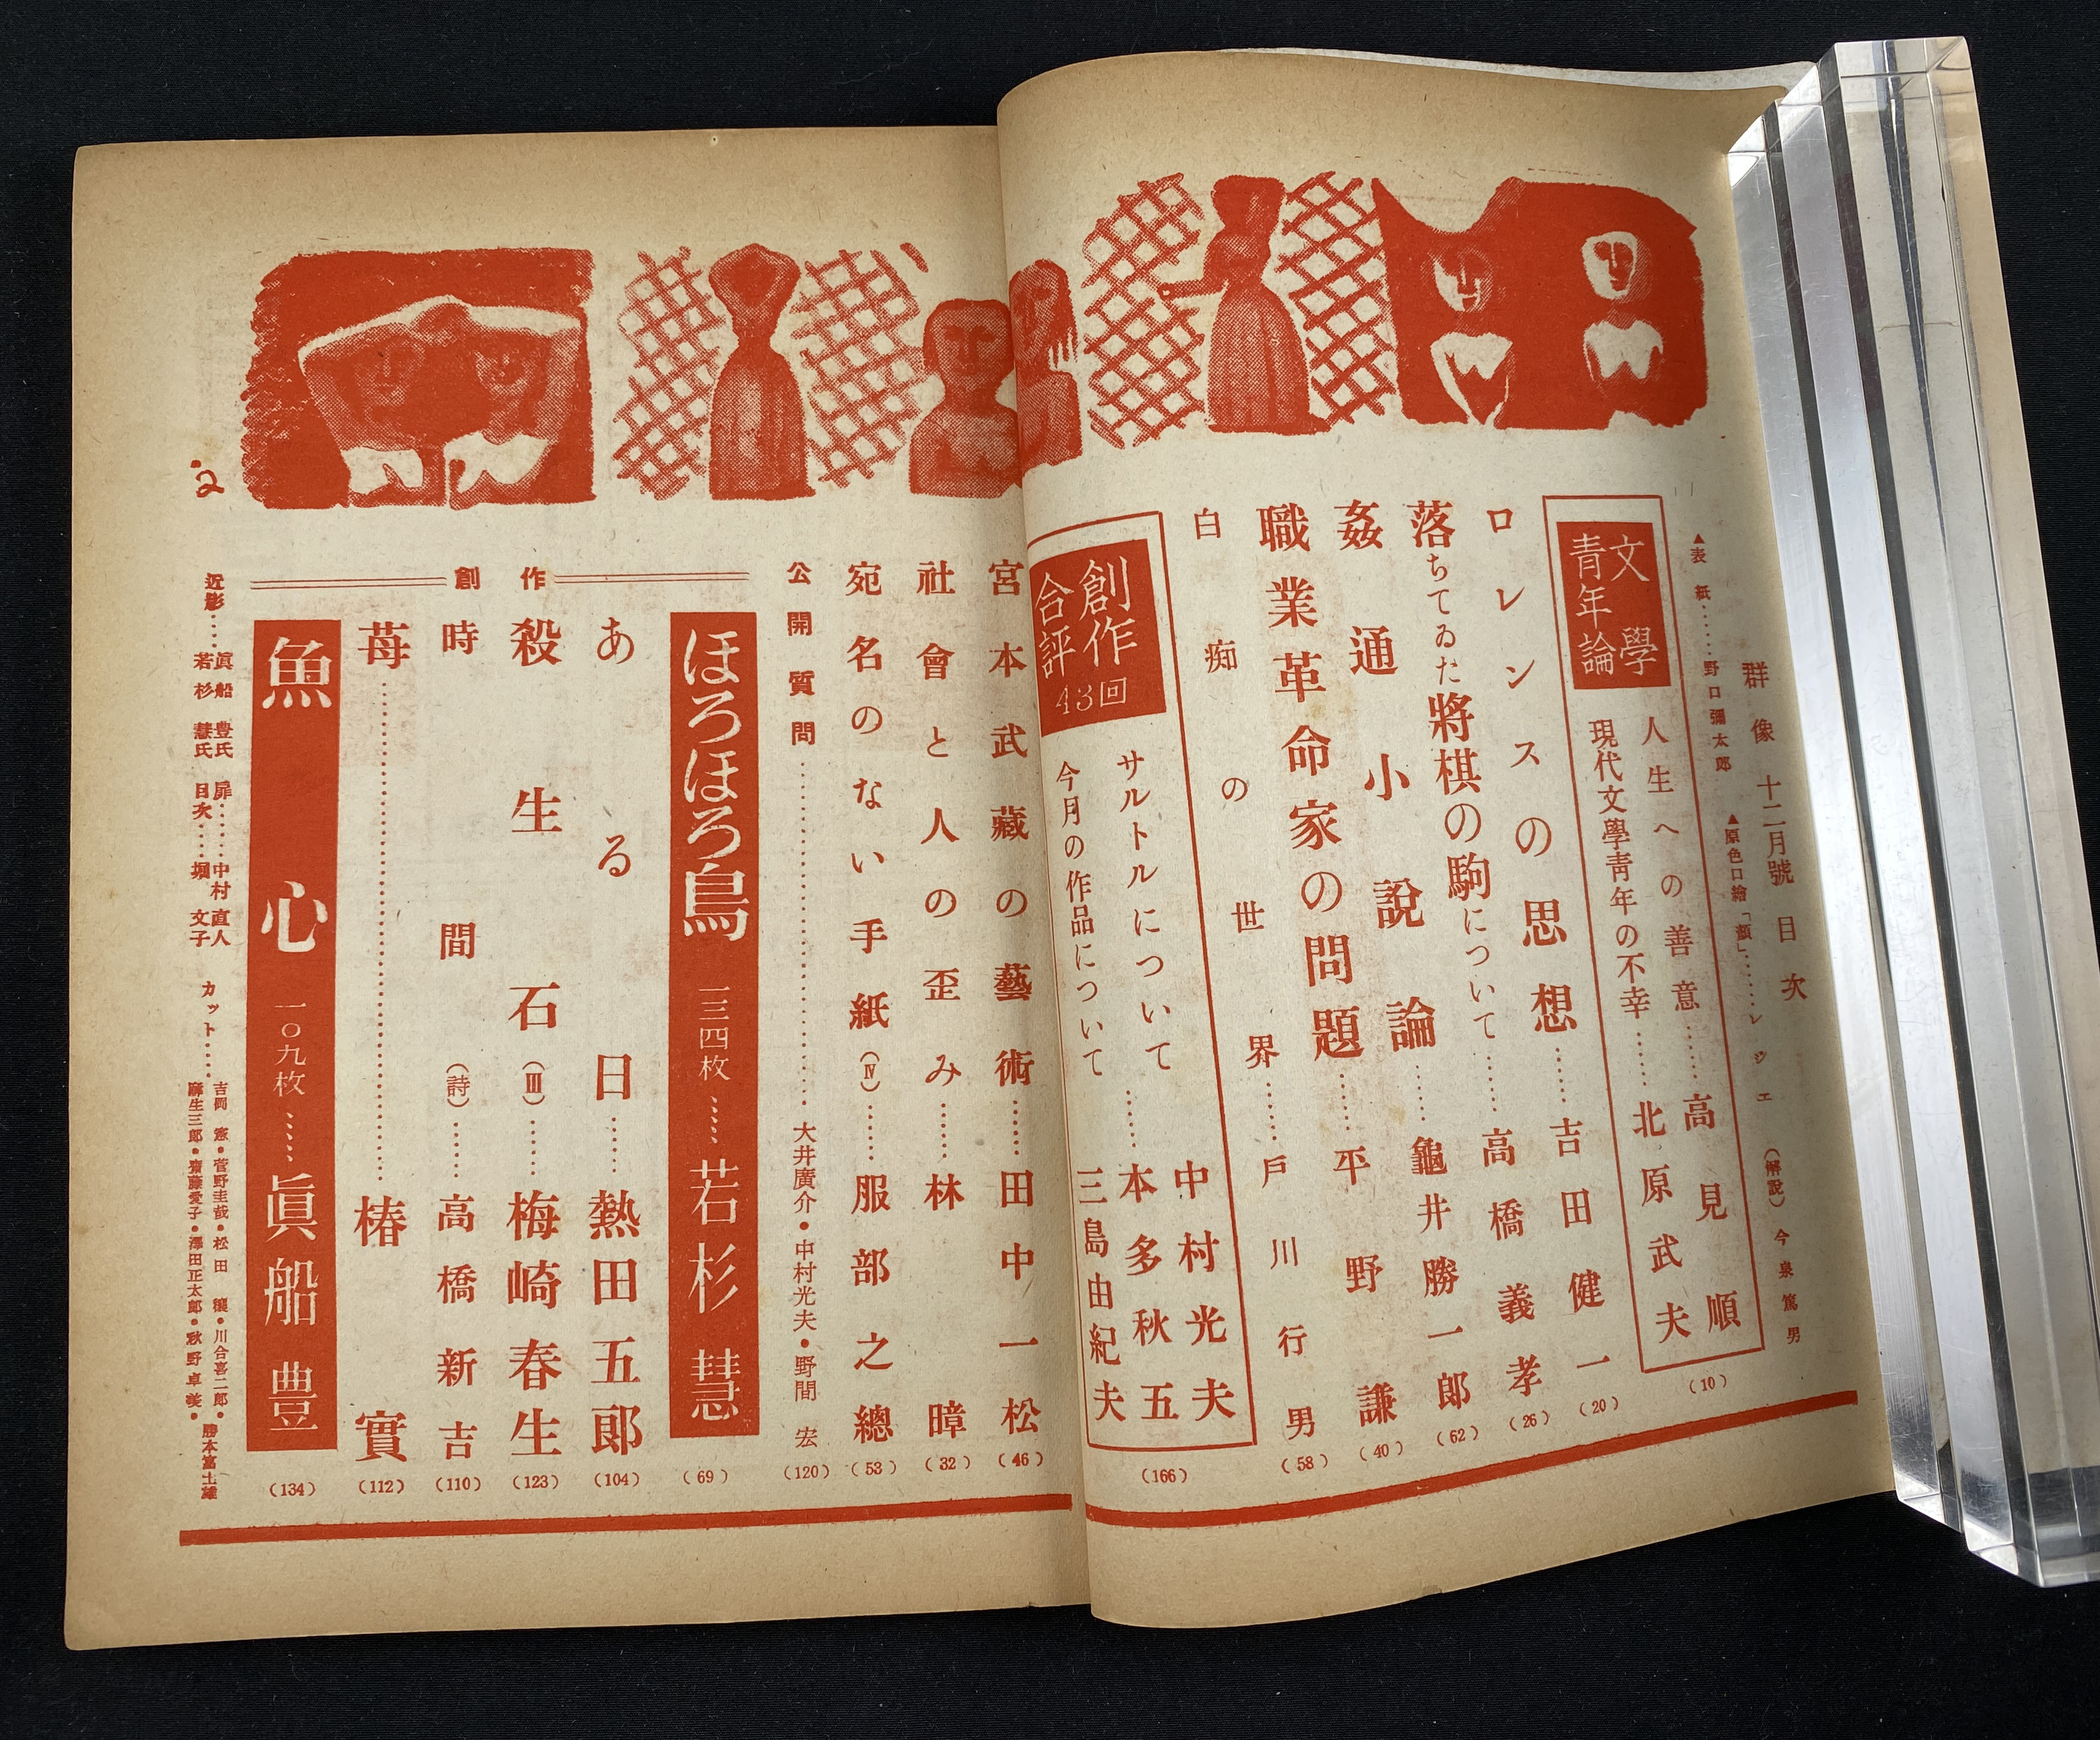 群像 十二月號 目次
▲表紙……野口彌太郎
▲原色口繪「顏」……レジェ (解說) 今泉篤男
文學
青年論
人生への善意……高見順
現代文學青年の不幸……北原武夫
(10)
ロレンスの思想……吉田健一 (20)
落ちてゐた將棋の駒について……高橋義孝 (26)
姦通小說論……龜井勝一郎 (62)
職業革命家の問題……平野謙 (40)
白痴の世界……戶川行男 (58)
創作
合評
43回
サルトルについて
今月の作品について……
中村光夫
本多秋五
三島由紀夫
(166)
宮本武藏の藝術……田中一松 (46)
社會と人の歪み……林暲 (32)
宛名のない手紙(Ⅳ)……服部之總 (53)
公開質問……大井廣介・中村光夫・野間宏 (120)
創作
ほろほろ鳥 一三四枚……若杉慧 (69)
ある日……熱田五郎 (104)
殺生石(Ⅲ)……梅崎春生 (123)
時間(詩)……高橋新吉 (110)
苺……椿實 (112)
魚心 一〇九枚……眞船豊 (134)
近影……眞船豊氏
若杉慧氏
扉……中村直人
目次……堀文子
カット……吉岡憲・菅野圭哉・松田穰・川合喜二郎・
麻生三郎・齋藤愛子・澤田正太郎・秋野卓美・
勝本富士雄
2